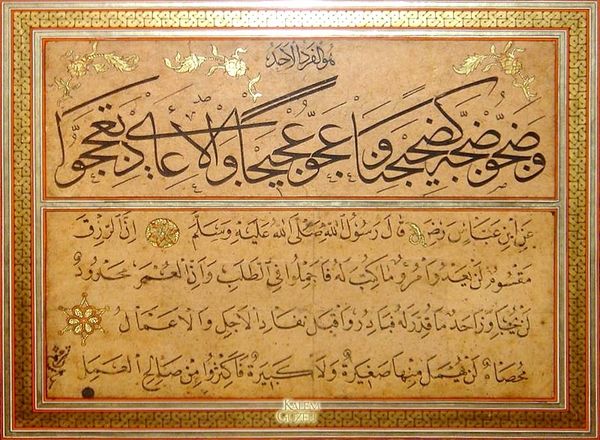 هو الفرد الاحد
وضجوا ضجة كضجيجنا وعجوا عجيجا والاعادي تعجوا
عن ابن عباس رض قال رسول الله صلى الله عليه وسلم ان الرزق
مقسوم لن يعدو امرؤ ما كتب له فاجملوا في الطلب وان العمر محدود
لن يجاوز احد ما قدر له فبادروا قبل نفاد الاجل والاعمال
محصاة لن يهمل منها صغيرة ولا كبيرة فاكثروا من صالح العمل
KALEM
GÜZELİ